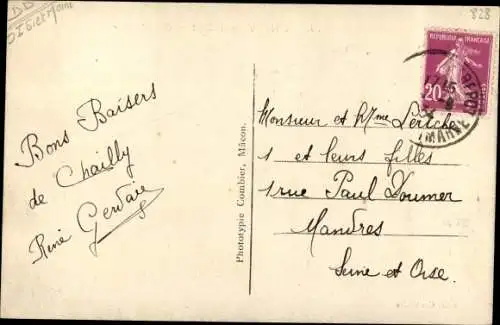 828
RÉPUBLIQUE FRANÇAISE
20c
MARNE
Bons Baisers
de Chailly
René Gervais
Phototypie Combier, Mâcon.
Monsieur et Mme Leriche
et leurs filles
1 rue Paul Doumer
Mandres
Seine et Oise.